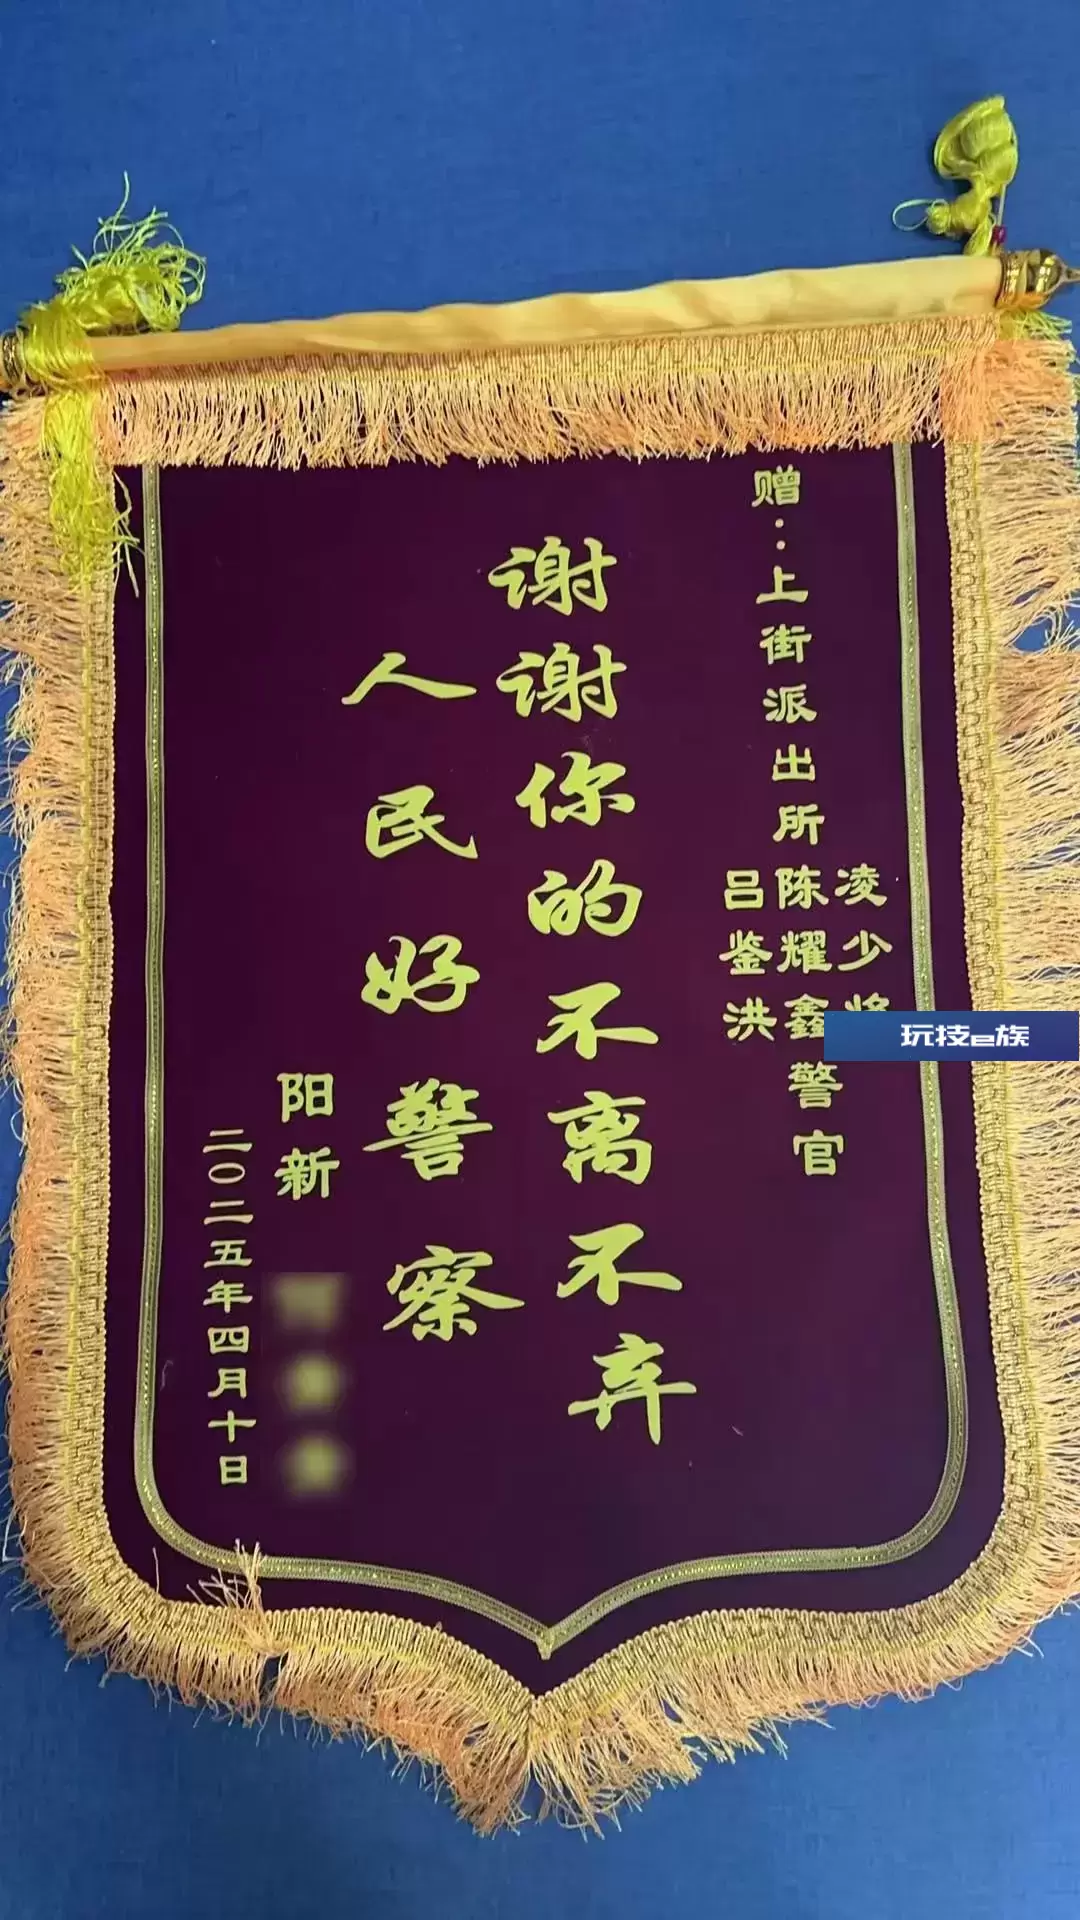 赠：上街派出所
凌少
陈耀鑫警官
吕鉴洪
谢谢你的不离不弃
人民好警察
阳新
二〇二五年四月十日
玩技e族